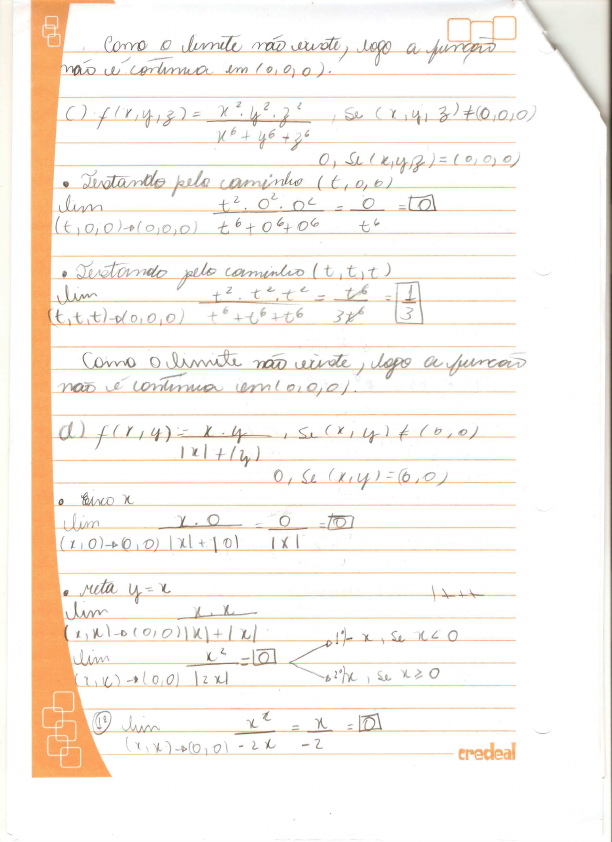 Como o limite não existe, logo a função
não é contínua em (0,0,0).
c) f(x,y,z) = x²·y²·z² / x⁶+y⁶+z⁶ , Se (x,y,z) ≠ (0,0,0)
0, Se (x,y,z) = (0,0,0)
• Testando pelo caminho (t,0,0)
lim t²·0²·0² / t⁶+0⁶+0⁶ = 0 / t⁶ = 0
(t,0,0)→(0,0,0)
• Testando pelo caminho (t,t,t)
lim t²·t²·t² / t⁶+t⁶+t⁶ = t⁶ / 3t⁶ = 1/3
(t,t,t)→(0,0,0)
Como o limite não existe, logo a função
não é contínua em (0,0,0).
d) f(x,y) = x·y / |x|+|y| , Se (x,y) ≠ (0,0)
0, Se (x,y) = (0,0)
• Eixo x
lim x·0 / |x|+|0| = 0 / |x| = 0
(x,0)→(0,0)
• reta y=x
lim x·x / |x|+|x|
(x,x)→(0,0)
1º - x, se x < 0
lim x² / |2x| = 0
(x,x)→(0,0)
2º x, se x ≥ 0
1º lim x² / -2x = x / -2 = 0
(x,x)→(0,0)
credeal